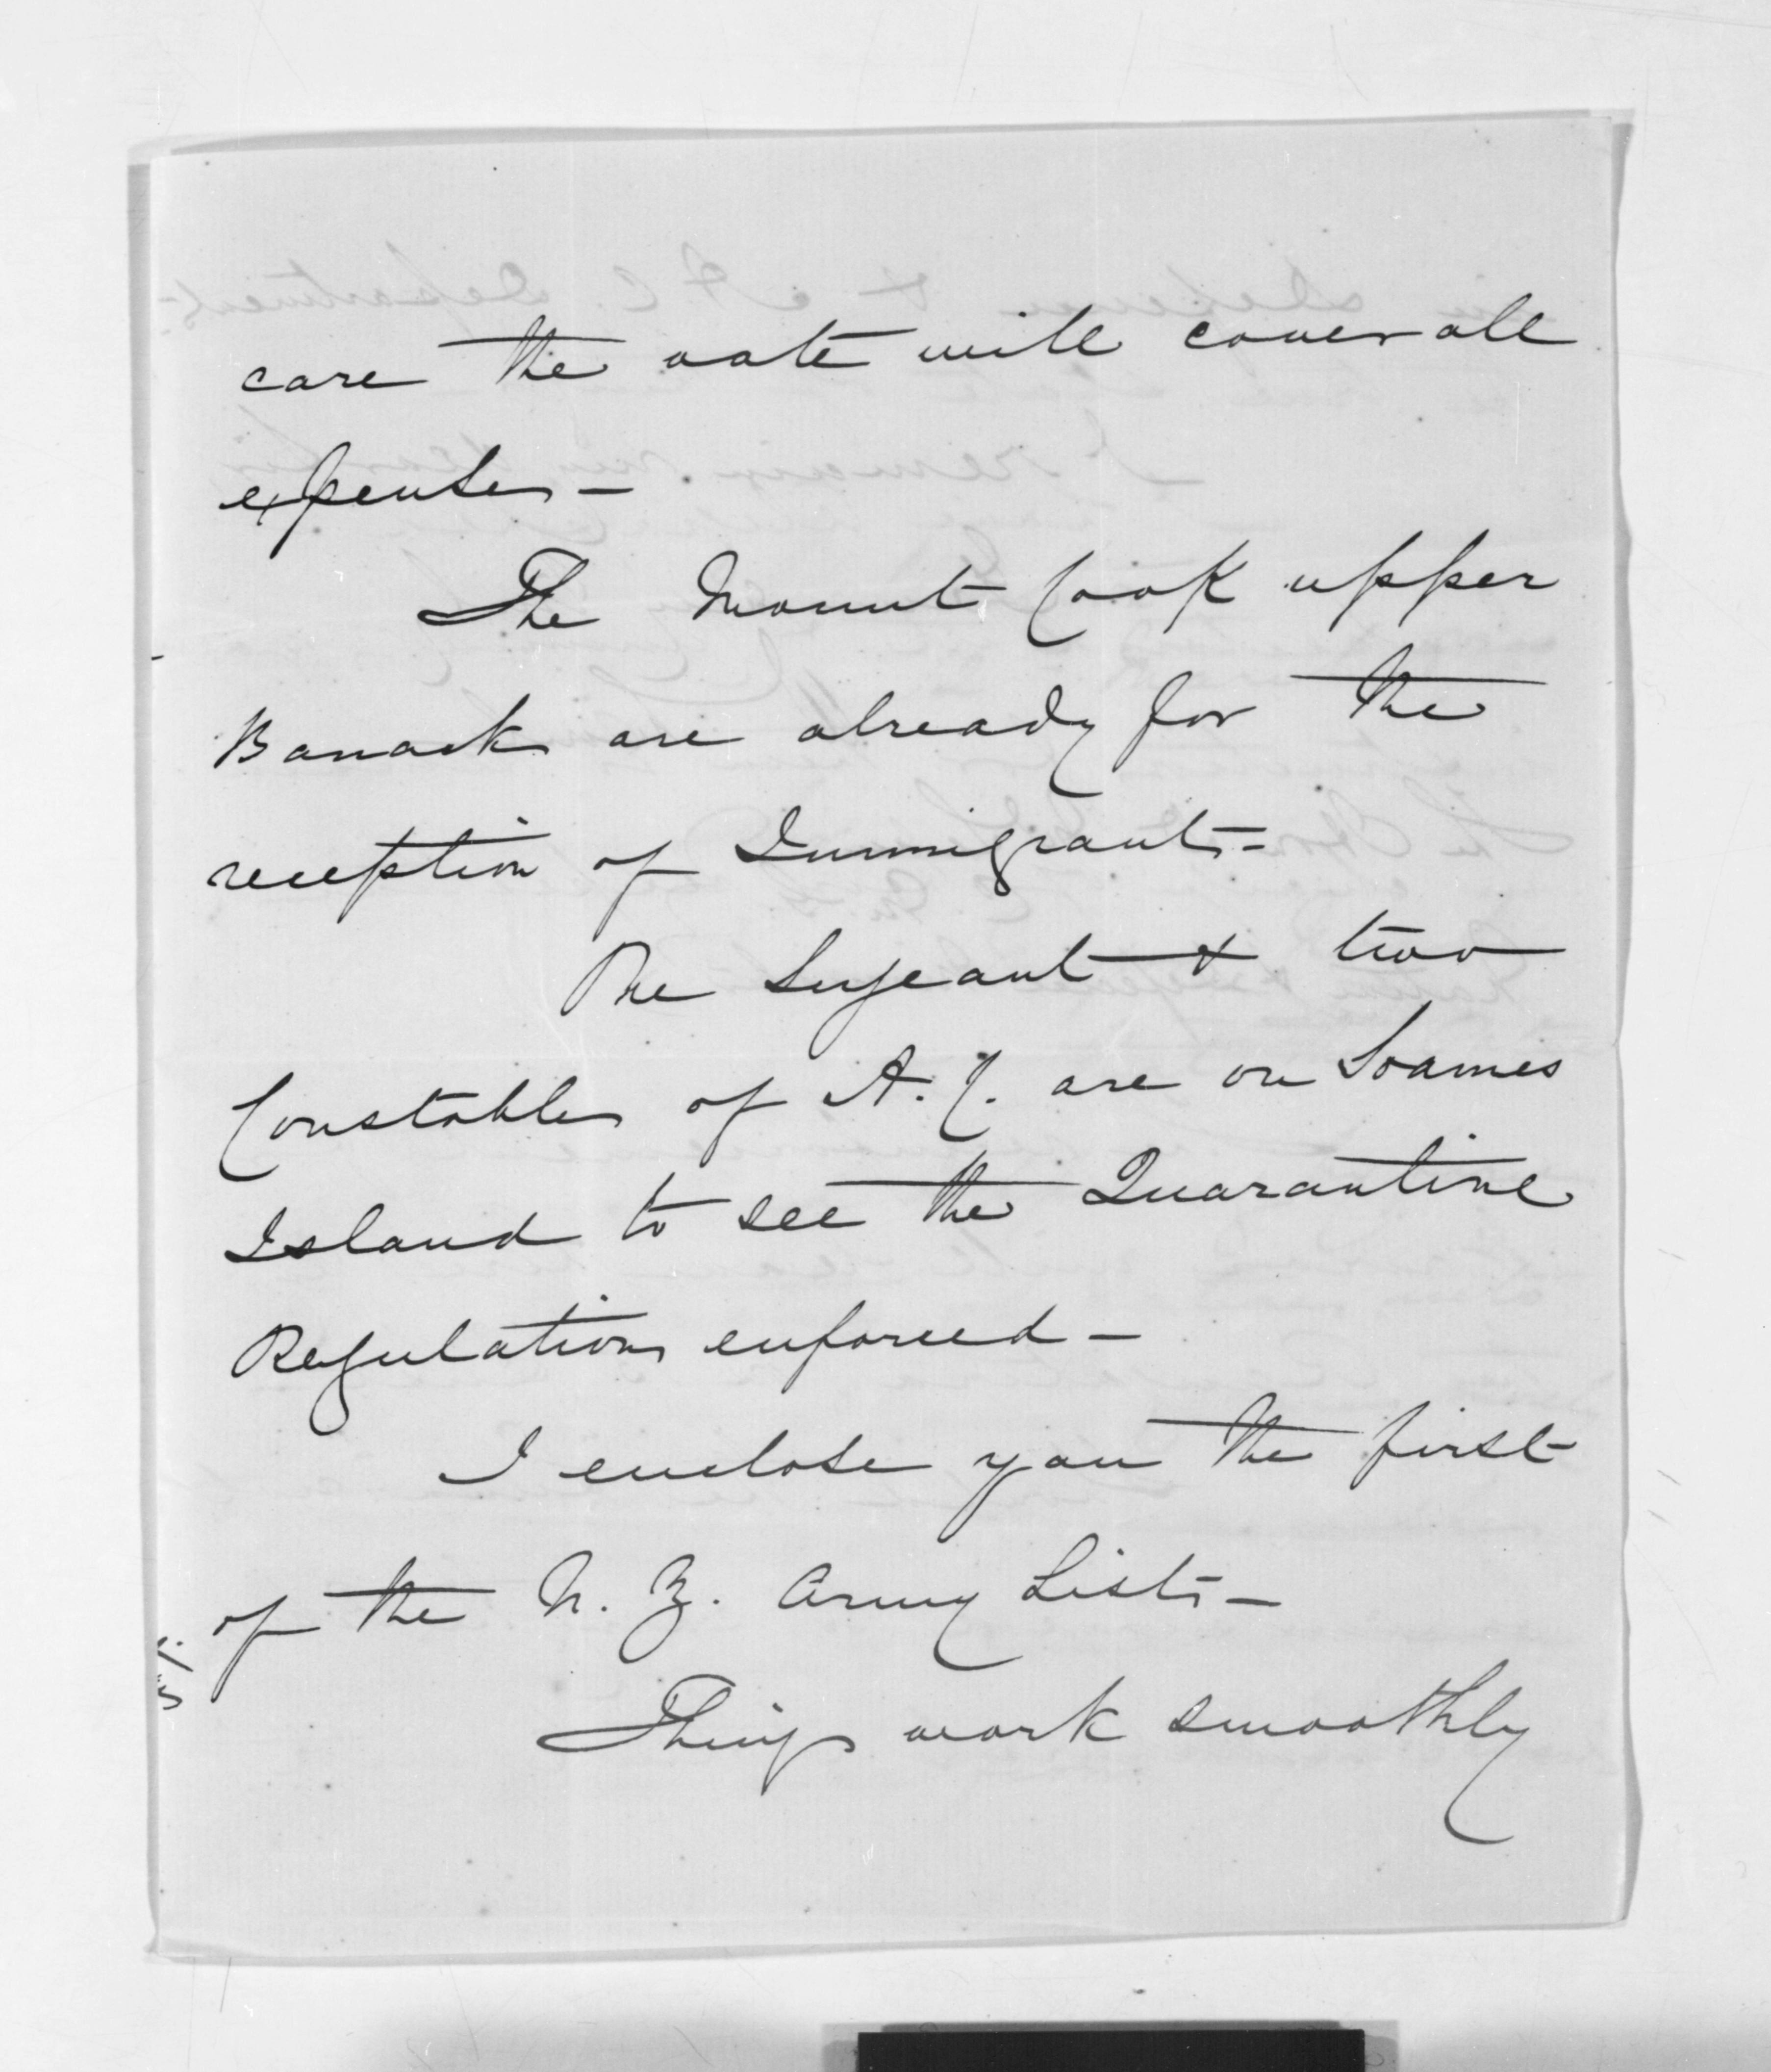 care the vote will cover all
expenses –
The Mount Cook upper
Barracks are already for the
reception of Immigrants –
One Sergeant & two
Constables of A. C. are on Soames
Island to see the Quarantine
Regulations enforced –
I enclose you the first
of the N. Z. Army Lists –
Things work smoothly